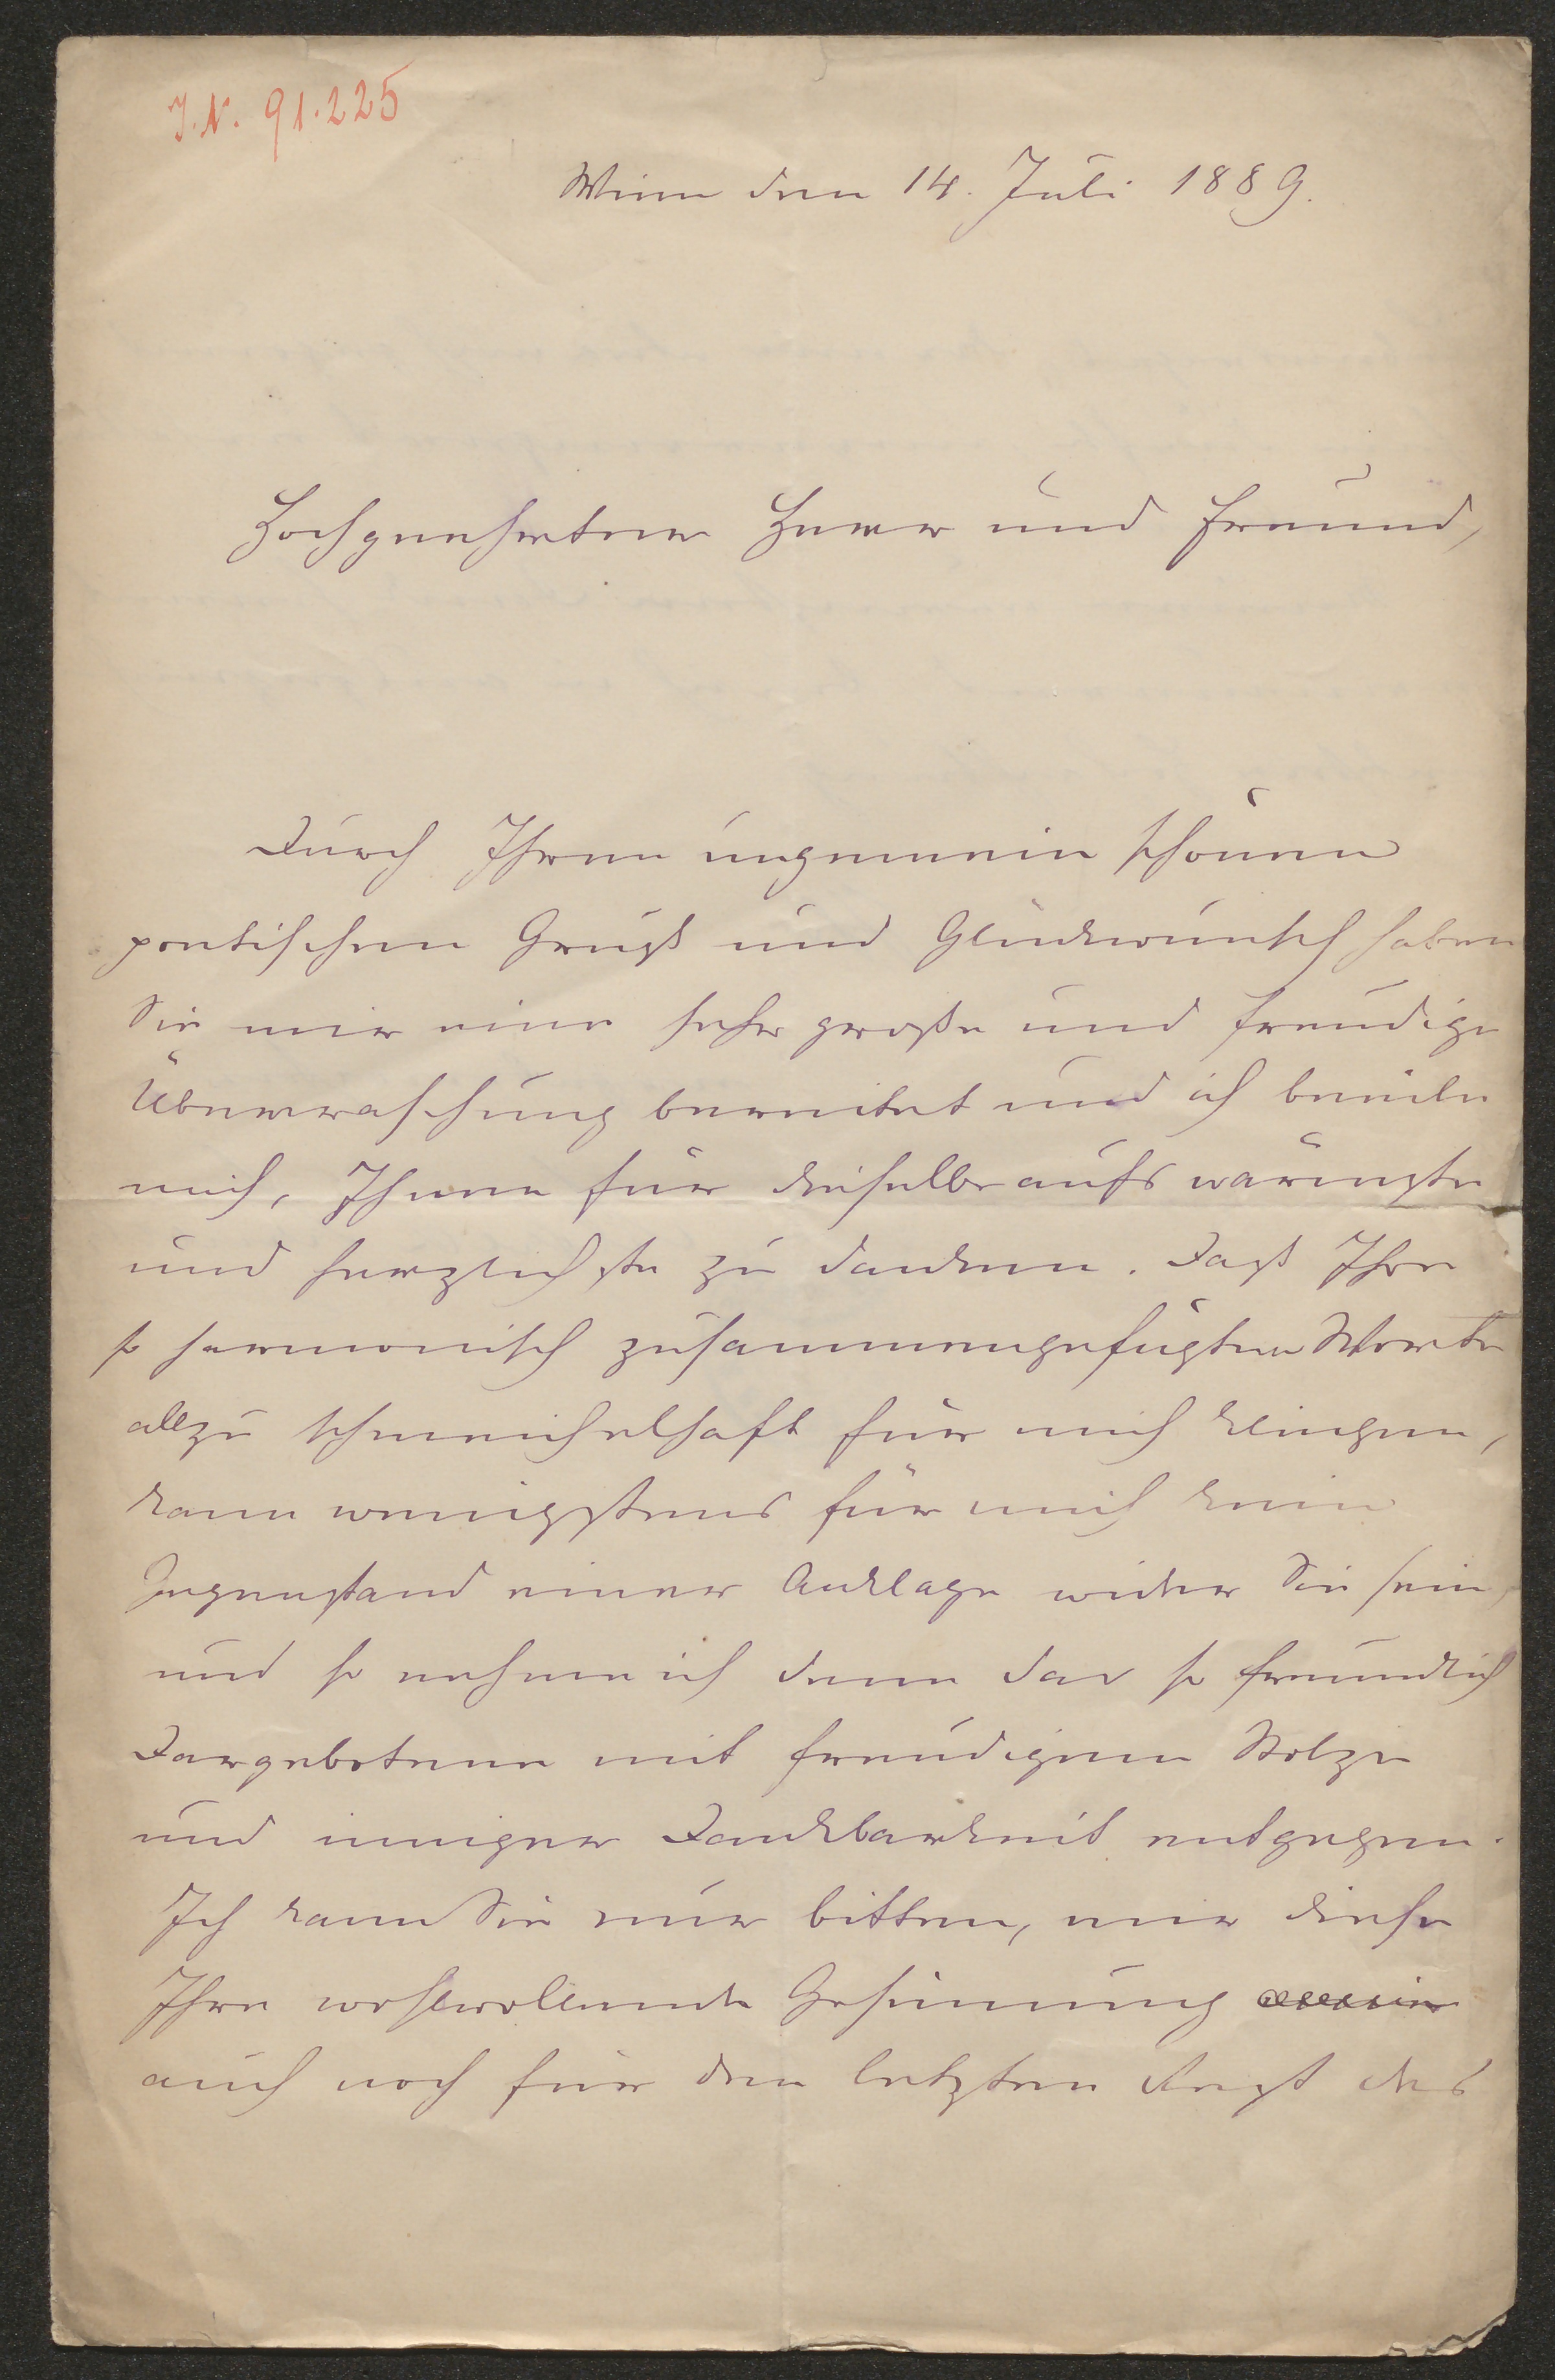 J.N. 91.225
Wien den 14. Juli 1889.
Hochgeehrter Herr und Freund,
Durch Ihren ungemein schönen
poetischen Gruß und Glückwunsch haben
Sie mir eine sehr große und freudige
Überraschung bereitet und ich beeile
mich, Ihnen für dieselbe aufs wärmste
und herzlichste zu danken. Daß Ihre
so harmonisch zusammengefügten Worte
allzu schmeichelhaft für mich klingen,
kann wenigstens für mich kein
Gegenstand einer Anklage wider Sie sein,
und so nehme ich denn das so freundlich
Dargebotene mit freudigem Stolze
und inniger Dankbarkeit entgegen.
Ich kann Sie nur bitten, mir diese
Ihre wohlwollende Gesinnung
auch noch für den letzten Rest des